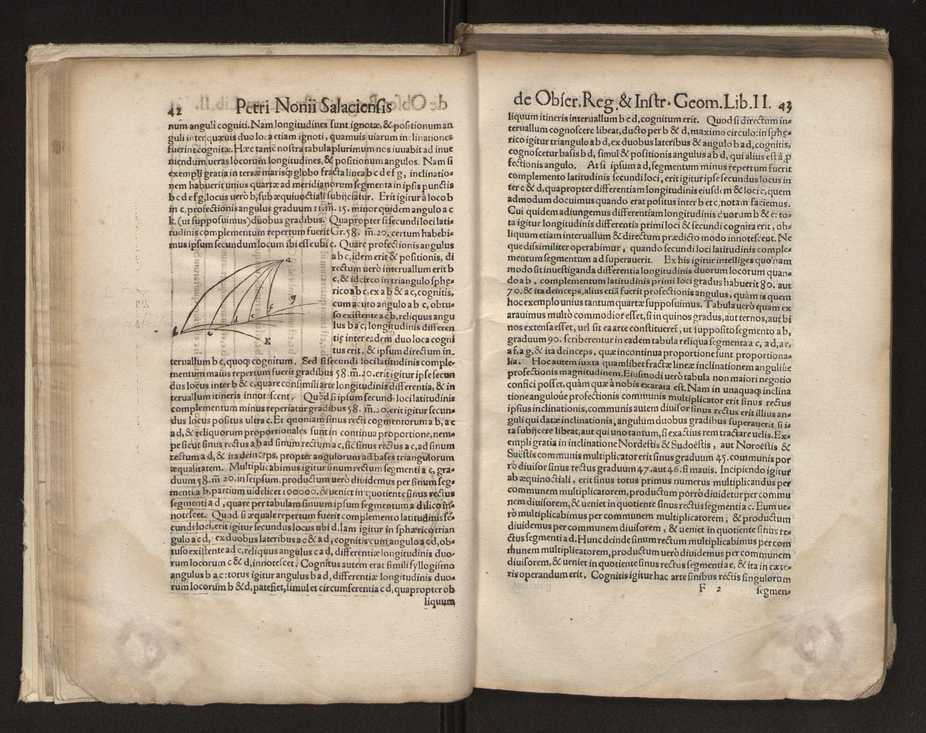 42 Petri Nonii Salaciensis
num anguli cogniti. Nam longitudines sunt ignotæ, & positionum an
guli inter quæuis duo loca etiam ignoti, quamuis uiarum inclinationes
fuerint cognitæ. Hæc tamẽ nostra tabula plurimum nos iuuabit ad inue
niendum ueras locorum longitudines, & positionum angulos. Nam si
exempli gratia in terræ marisq́; globo fracta linea b c d e f g, inclinatio-
nem habuerit unius quartæ ad meridianorum segmenta in ipsis punctis
b c d e f g, locus uerò b, sub æquinoctiali subijciatur. Erit igitur à loco b
in c, profectionis angulus graduum 11. m̃. 15. minor quidem angulo a c
k (ut supposuimus) duobus gradibus. Quapropter si secundi loci lati
tudinis complementum repertum fuerit Gr. 58. m̃. 20. certum habebi-
mus ipsum secundum locum ibi esse ubi c. Quare profectionis angulus
a b c, idem erit & positionis, di
rectum uerò interuallum erit b
c, & idcirco in triangulo sphę-
rico a b c, ex a b & a c, cognitis,
cum acuto angulo a b c, obtu-
so existente a c b, reliquus angu
lus b a c, longitudinis differen
tię inter eadem duo loca cogni
tus erit, & ipsum directum in-
teruallum b c, quoq; cognitum. Sed si secundi loci latitudinis comple-
mentum maius repertum fuerit gradibus 58. m̃. 20. erit igitur ipse secun
dus locus inter b & c, quare consimili arte longitudinis differentia, & in
teruallum itineris innotescent. Quòd si ipsum secundi loci latitudinis
complementum minus reperiatur gradibus 58. m̃. 20. erit igitur secun-
dus locus positus ultra c. Et quoniam sinus recti segmentorum a b, a c
a d, & reliquorum proportionales sunt in continua proportione, nem-
pe sicut sinus rectus a b ad sinum rectum a c, sic sinus rectus a c, ad sinum
rectum a d, & ita deinceps, propter angulorum ad bases triangulorum
æqualitatem. Multiplicabimus igitur sinum rectum segmenti a c, gra-
duum 58. m̃. 20. in seipsum. productum uerò diuidemus per sinum seg-
menti a b, partium uidelicet 100000. & ueniet in quotiente sinus rectus
segmenti a d, quare per tabulam sinuum ipsum segmentum a d ilico in-
notescet. Quòd si æquale repertum fuerit complemento latitudinis se-
cundi loci, erit igitur secundus locus ubi d. Iam igitur in sphærico trian
gulo a c d, ex duobus lateribus a c & a d, cognitis cum angulo a c d, ob-
tuso existente a d c, reliquus angulus c a d, differentiæ longitudinis duo-
rum locorum c & d, innotescet. Cognitus autem erat simili syllogismo
angulus b a c: totus igitur angulus b a d, differentiæ longitudinis duo-
rum locorum b & d, patefiet, simul et circumferentia c d, quapropter ob
liquum
a
b
c
d
e
f
g
K
de Obser. Reg. & Instr. Geom. Lib. II. 43
liquum itineris interuallum b c d, cognitum erit. Quod si directum in-
teruallum cognoscere libeat, ducto per b & d, maximo circulo: in sphę-
rico igitur triangulo a b d, ex duobus lateribus & angulo b a d, cognitis,
cognoscetur basis b d, simul & positionis angulus a b d, qui alius est à p̃
fectionis angulo. At si ipsum a d, segmentum minus repertum fuerit
complemento latitudinis secundi loci, erit igitur ipse secundus locus in
ter c & d, quapropter differentiam longitudinis eiusdem & loci c, quem
admodum docuimus quando erat positus inter b et c, notam faciemus.
Cui quidem adiungemus differentiam longitudinis duorum b & c: to-
ta igitur longitudinis differentia primi loci & secundi cognita erit, ob-
liquum etiam interuallum & directum prædicto modo innotescent. Ne
que dissimiliter operabimur, quando secundi loci latitudinis comple-
mentum segmentum a d superauerit. Ex his igitur intelliges quo nam
modo sit inuestiganda differentia longitudinis duorum locorum quan-
do a b, complementum latitudinis primi loci gradus habuerit 80. aut
70. & ita deinceps, alius etiã fuerit profectionis angulus, quàm is quem
hoc exemplo unius tantum quartæ supposuimus. Tabula uerò quam ex
arauimus multò commodior esset, si in quinos gradus, aut ternos, aut bi
nos extensa esset, uel sit ea arte constitueres, ut supposito segmento a b,
graduum 90. scriberentur in eadem tabula reliqua segmenta a c, a d, a e,
a f, a g, & ita deinceps, quæ in continua proportione sunt proportiona-
lia. Hoc autem iuxta quamlibet fractæ lineæ inclinationem anguliue
profectionis magnitudinem. Eiusmodi uerò tabula non maiori negotio
confici posset, quàm quæ à nobis exarata est. Nam in unaquaq; inclina
tione angulóue profectionis communis multiplicator erit sinus rectus
ipsius inclinationis, communis autem diuisor sinus rectus erit illius an-
guli qui datæ inclinationis, angulum duobus gradibus superauerit, si is
ta subijcere libeat, aut qui uno tantum, si exactius rem tractare uelis. Ex-
empli gratia in inclinatione Nordestis & Sudoestis, aut Noroestis &
Suestis communis multiplicator erit sinus graduum 45. communis por
rò diuisor sinus rectus graduum 47. aut 46. si mauis. Incipiendo igitur
ab æquinoctiali, erit sinus totus primus numerus multiplicandus per
communem multiplicatorem, productum porrò diuidetur per commu
nem diuisorem, & ueniet in quotiente sinus rectus segmenti a c. Eum ue-
rò multiplicabimus per communem multiplicatorem, & productum
diuidemus per communem diuisorem, & ueniet in quotiente sinus re-
ctus segmenti a d. Hunc deinde sinum rectum multiplicabimus per com
munem multiplicatorem, productum uerò diuidemus per communem
diuisorem, & ueniet in quotiente sinus rectus segmenti a e, & ita in cæte-
ris operandum erit. Cognitis igitur hac arte sinibus rectis singulorum
F 2 segmen-